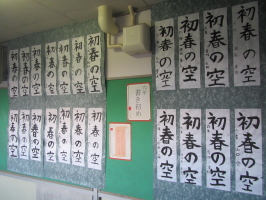 初春の空
初春の空
初春の空
初春の空
初春の空
初春の空
初春の空
初春の空
初春の空
初春の空
初春の空
初春の空
初春の空
初春の空
書き初め
初春の空
初春の空
初春の空
初春の空
初春の空
初春の空
初春の空
初春の空